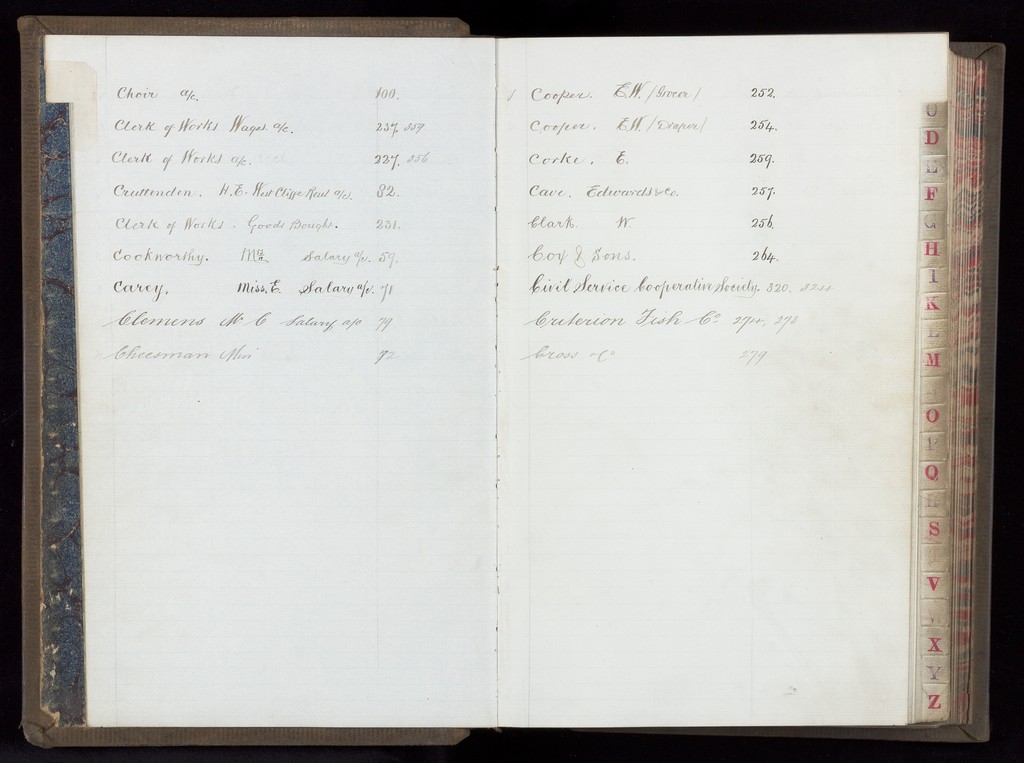 Choir a/c. 100.
Clerk of Works Wages a/c. 237. 359
Clerk of Works a/c. 227. 356
Cruttenden. H.E. West Cliffe Rent a/c. 82.
Clerk of Works. Goods Bought. 231.
Cookworthy. Salary a/c. 59.
Carey. Miss. E. Salary a/c. 71
Clemens Mr C Salary a/c 79
Cheesman Miss 72
Cooper. E.W. (Grocer) 252.
Cooper. E.W. (Draper) 254.
Corke. E. 259.
Cave. Edwards & Co. 257.
Clark. W. 256.
Cox & Sons. 264.
Civil Service Cooperative Society. 320.
Criterion Fish Co 274, 278
Cross 279
D
E
F
G
H
I
K
L
M
O
P
Q
R
S
V
X
Y
Z